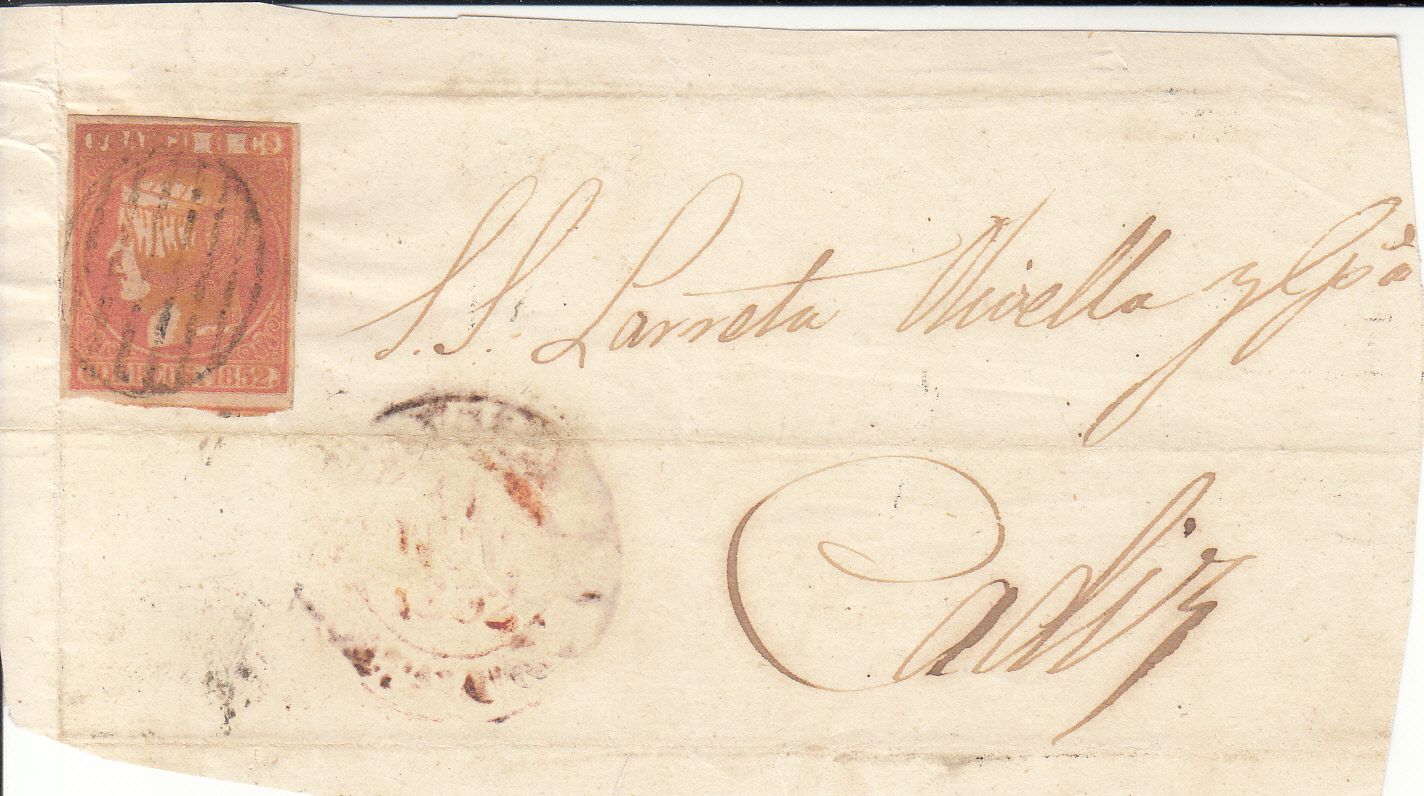 FRANCO 6 CS
CORREOS 1852
S.S. Larreta Nivella y Cpª
Cadiz